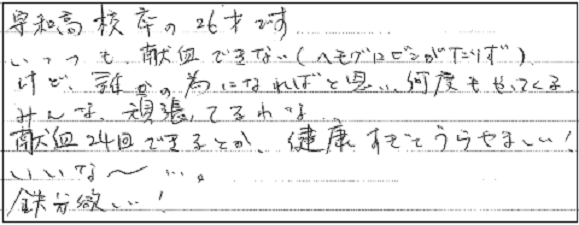 昭和高校卒の26才です
いっつも、献血できない(ヘモグロビンがたりず)
けど、誰かの為になればと思い、何度もやってくる。
みんな、頑張ってるわな…
献血24回できるとか、健康すぎてうらやましい!
いいな〜…。
鉄分欲しい!